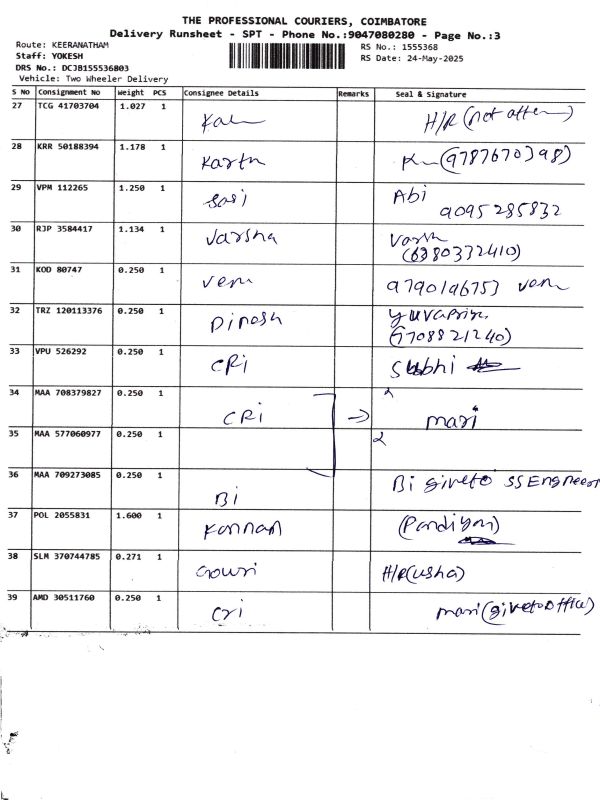 THE PROFESSIONAL COURIERS, COIMBATORE
Delivery Runsheet - SPT - Phone No.:9047080280 - Page No.:3
Route: KEERANATHAM
RS No.: 1555368
Staff: YOKESH
RS Date: 24-May-2025
DRS No.: DCJB155536803
Vehicle: Two Wheeler Delivery
S No Consignment No Weight PCS Consignee Details Remarks Seal & Signature
27 TCG 41703704 1.027 1 H/R (not atten)
28 KRR 50188394 1.178 1 Karth (9787670398)
29 VPM 112265 1.250 1 Sasi Abi
9095285832
30 RJP 3584417 1.134 1 Varsha Varsh
(6380332410)
31 KOD 80747 0.250 1 Veni 9790196753 Veni
32 TRZ 120113376 0.250 1 Dinesh Yuvapriya
(7708821240)
33 VPU 526292 0.250 1 CRi Subhi
34 MAA 708379827 0.250 1 CRi → mari
35 MAA 577060977 0.250 1
36 MAA 709273085 0.250 1 Bi Bi giveto SS Engineer
37 POL 2055831 1.600 1 Kannan (Pandiyan)
38 SLM 370744785 0.271 1 Gowri H/R(usha)
39 AMD 30511760 0.250 1 Cri mari(giveto office)